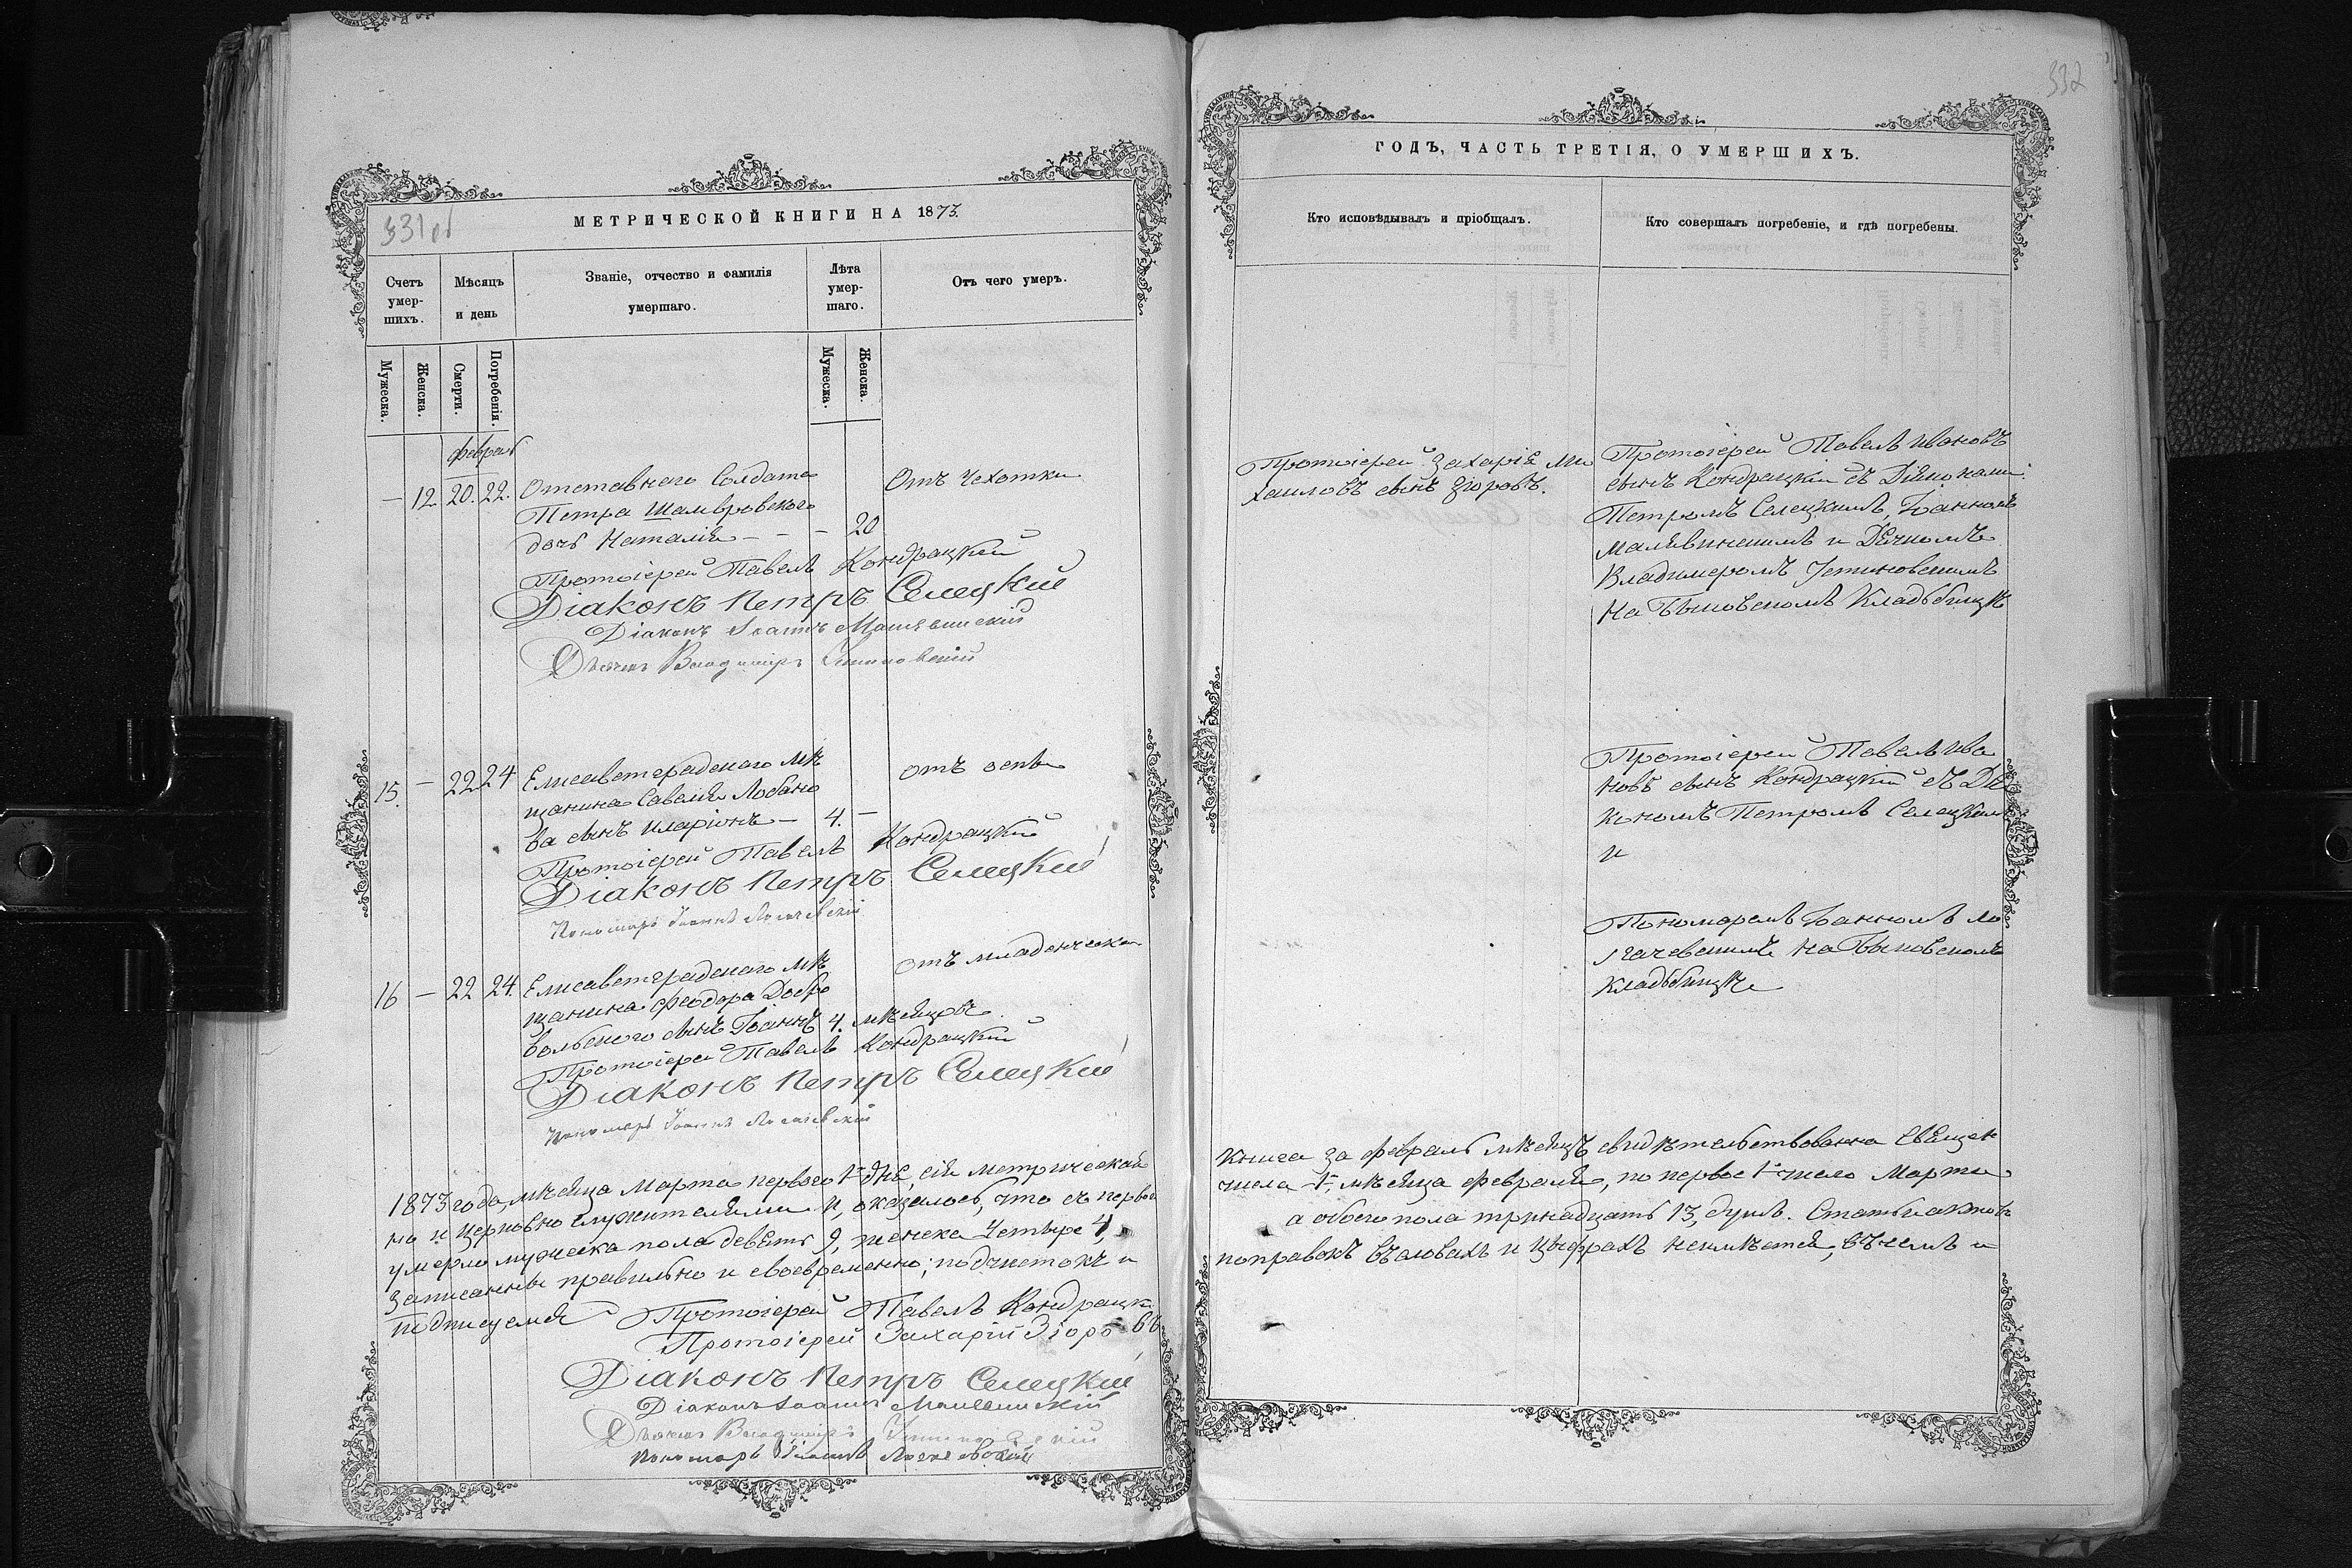 331 об
МЕТРИЧЕСКОЙ КНИГИ НА 1873.
Счетъ умер-шихъ.
Мѣсяцъ и день
Званіе, отчество и фамилія умершаго.
Лѣта умер-шаго.
Отъ чего умеръ.
Мужеска.
Женска.
Смерти.
Погребенія.
Мужеска.
Женска.
Февраль
— 12. 20. 22. Отставнаго Солдата Отъ Чехотки
Петра
дочь Наталія — — — 20
Протоіерей Павелъ Кондрацкій
Діаконъ Петръ Селецкій
Діаконъ Іоаннъ Малявинскій
Дьячекъ Владиміръ Устиновскій
15. — 22 24 Елисаветградскаго мѣ отъ оспы
щанина Савелія Лобано
ва сынъ Иларіонъ — 4. —
Протоіерей Павелъ Кондрацкій
Діаконъ Петръ Селецкій
Пономарь Іоаннъ Логачевскій
16 — 22 24. Елисаветградскаго мѣ отъ младенческой
щанина Феодора Добро
вольскаго сынъ Іоаннъ 4. мѣсяцовъ
Протоіерей Павелъ Кондрацкій
Діаконъ Петръ Селецкій
Пономарь Іоаннъ Логачевскій
1873 года, мѣсяца Марта перваго 1го дня, сія метрическая
но и церковно служителями и, оказалось, что съ перваго
умерло мужеска пола девять 9, женска четыре 4,
записанны правильно и своевременно; подчистокъ и
подписуемся Протоіерей Павелъ Кондрацкій
Протоіерей Захарій Згоровъ
Діаконъ Петръ Селецкій
Діаконъ Іоаннъ Малявинскій
Дьячекъ Владиміръ Устиновскій
Пономарь Іоаннъ Логачевскій
332
ГОДЪ, ЧАСТЬ ТРЕТІЯ, О УМЕРШИХЪ.
Кто исповѣдывалъ и пріобщалъ.
Кто совершалъ погребеніе, и гдѣ погребены.
Протоіерей Захарія Ми
хаиловъ сынъ Згоровъ.
Протоіерей Павелъ Ивановъ
сынъ Кондрацкій съ Діяконами:
Петромъ Селецкимъ, Іоанномъ
Малявинскимъ и Дячкомъ
Владимеромъ Устиновскимъ
На Быковскомъ Кладьбищѣ
Протоіерей Павелъ Ива
новъ сынъ Кондрацкій съ Дія
кономъ Петромъ Селецкимъ
и
Пономаремъ Іоанномъ Ло
гачевскимъ На Быковскомъ
Кладьбищѣ
Книга за февраль мѣсяцъ свидѣтельствованна Священ
числа 1го, мѣсяца Февраля, по первое 1е число Марта
а обоего пола тринадцать 13, душъ. Статьи актовъ
поправокъ въ словахъ и цыфрахъ неимѣется; въ чемъ и